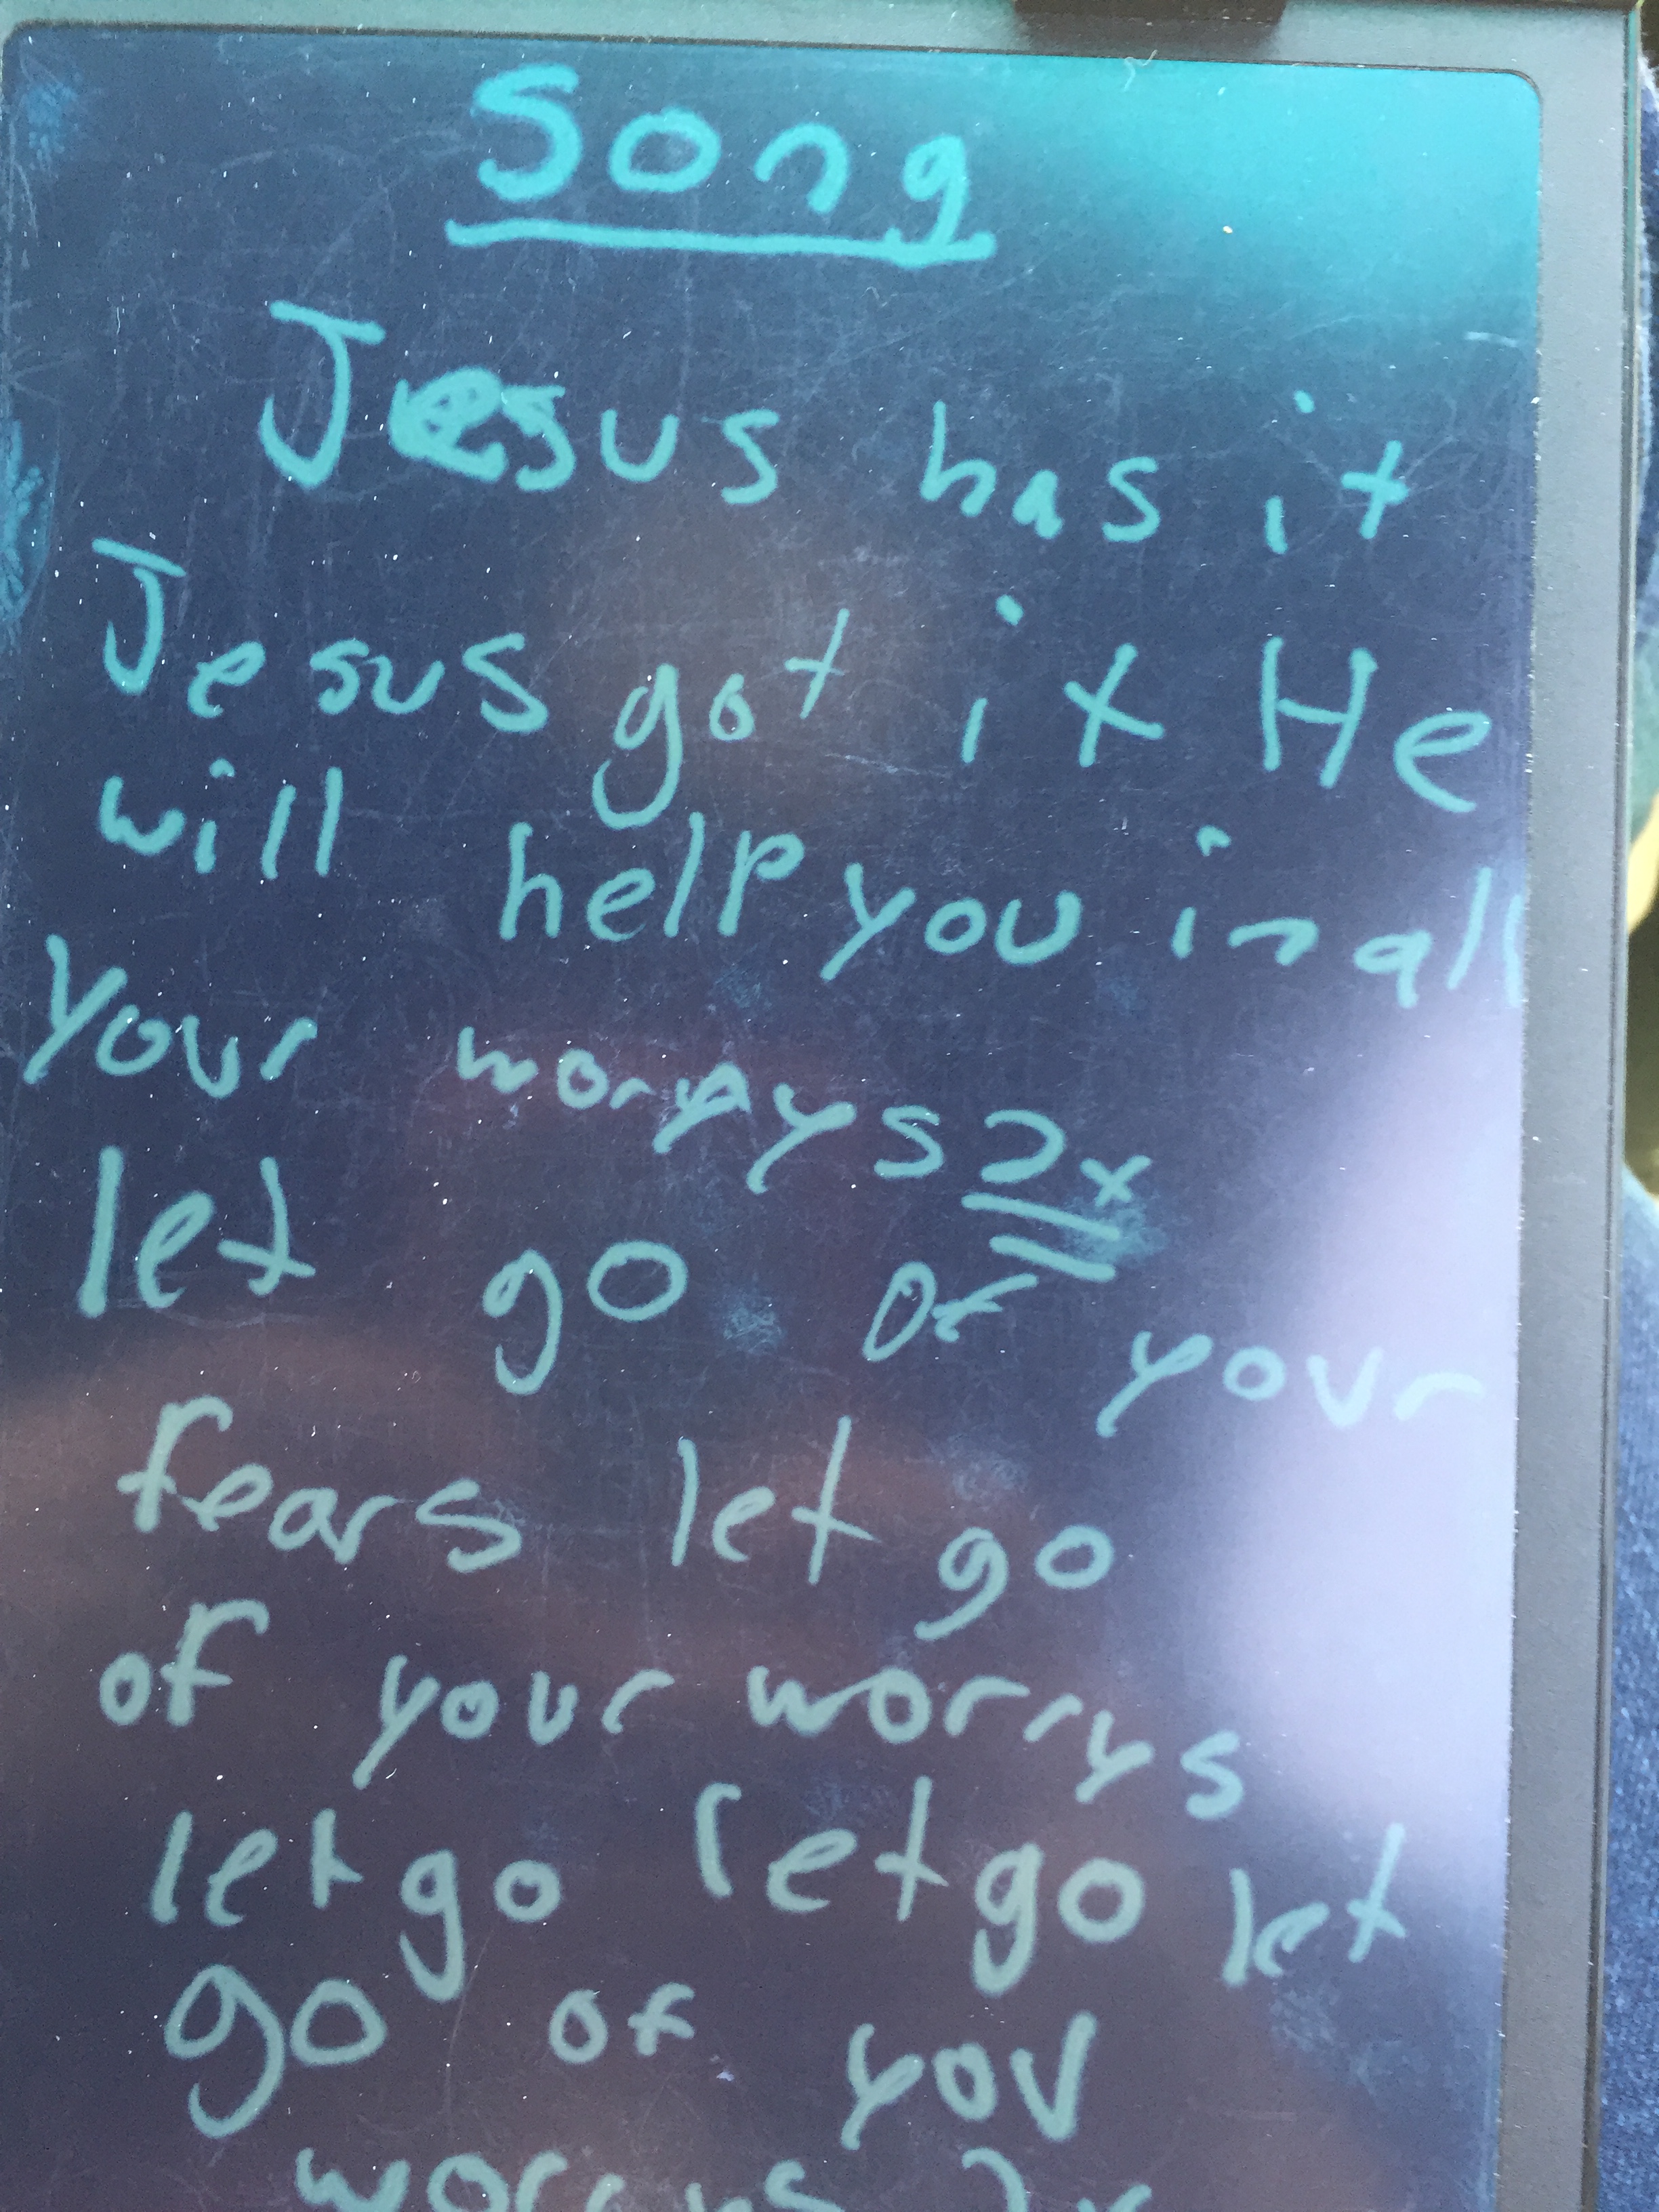 Song
Jesus has it
Jesus got it He
will help you in all
your worrys 2x
let go of your
fears let go
of your worrys
let go let go let
go of you
worrys 2x